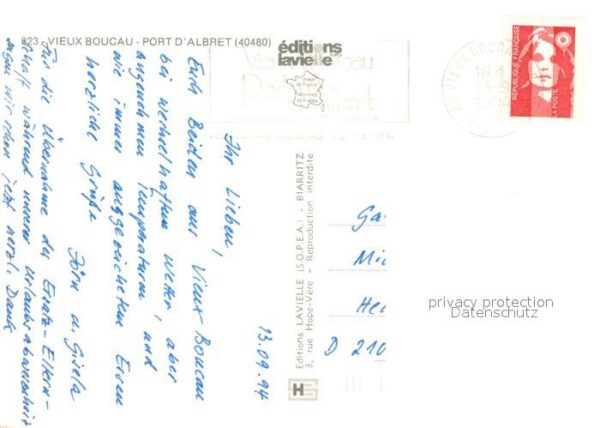 823 - VIEUX BOUCAU - PORT D'ALBRET (40480)
éditions
lavielle
RÉPUBLIQUE FRANÇAISE
LA POSTE
13.09.94
Ihr Lieben,
Euch Beiden aus Vieux-Boucau
bei wechselhaftem Wetter, aber
angenehmen Temperaturen und
wie immer ausgezeichetem Essen
herzliche Grüße
Jörn u. Gisela
Für die Übernahme der Ersatz-Eltern-
schaft während unserer Urlaubsabwesenheit
sagen wir schon jetzt herzl. Dank
Editions LAVIELLE (S.O.P.E.A.) - BIARRITZ
3, rue Hope-Vère - Reproduction interdite
Ga
Mi
He
D 210
privacy protection
Datenschutz